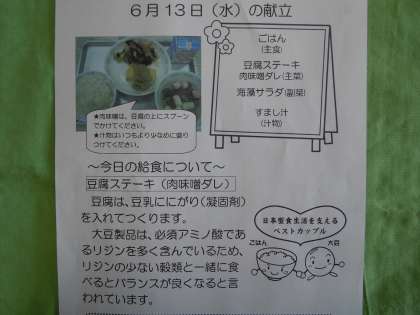 6月13日（水）の献立
ごはん
（主食）
豆腐ステーキ
肉味噌ダレ（主菜）
海藻サラダ（副菜）
すまし汁
（汁物）
★肉味噌は、豆腐の上にスプーン
でかけてください。
★汁物はいつもより少なめに盛り
つけてください。
～今日の給食について～
豆腐ステーキ（肉味噌ダレ）
豆腐は、豆乳ににがり（凝固剤）
を入れてつくります。
大豆製品は、必須アミノ酸であ
るリジンを多く含んでいるため、
リジンの少ない穀類と一緒に食
べるとバランスが良くなると言
われています。
日本型食生活を支える
ベストカップル
ごはん
大豆